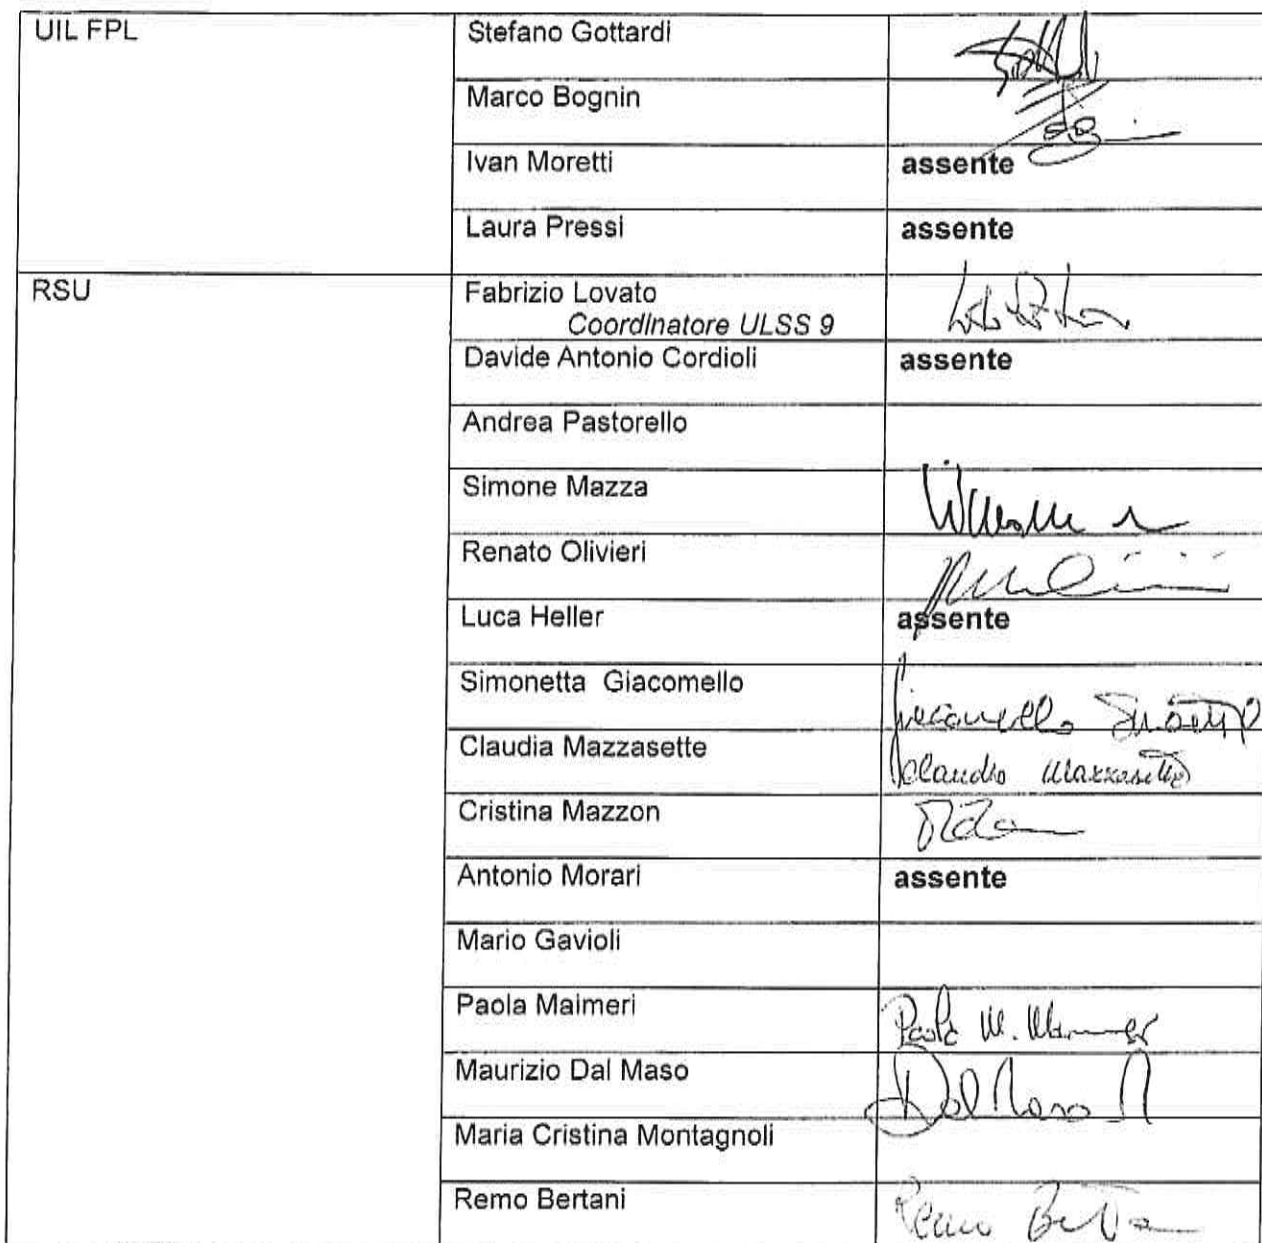 UIL FPL
Stefano Gottardi
Marco Bognin
Ivan Moretti
assente
Laura Pressi
assente
RSU
Fabrizio Lovato
Coordinatore ULSS 9
Davide Antonio Cordioli
assente
Andrea Pastorello
Simone Mazza
Renato Olivieri
Luca Heller
assente
Simonetta Giacomello
Giacomello
Claudia Mazzasette
Claudia Mazzasette
Cristina Mazzon
Antonio Morari
assente
Mario Gavioli
Paola Maimeri
Paola M.
Maurizio Dal Maso
Dal Maso M
Maria Cristina Montagnoli
Remo Bertani
Remo